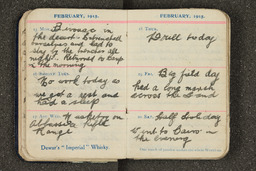 FEBRUARY, 1915.
Bivouac in
the desert. Entrenched
ourselves and had to
stay by the trenches all
night. Returned to Camp
in the morning
No work today as
we got a rest and
had a sleep
Musketry on
Abbassia Rifle
Range
Dewar's "Imperial" Whisky.
FEBRUARY, 1915.
Drill today
Big field day
had a long march
across the sand
Half holiday
went to Cairo in
the evening